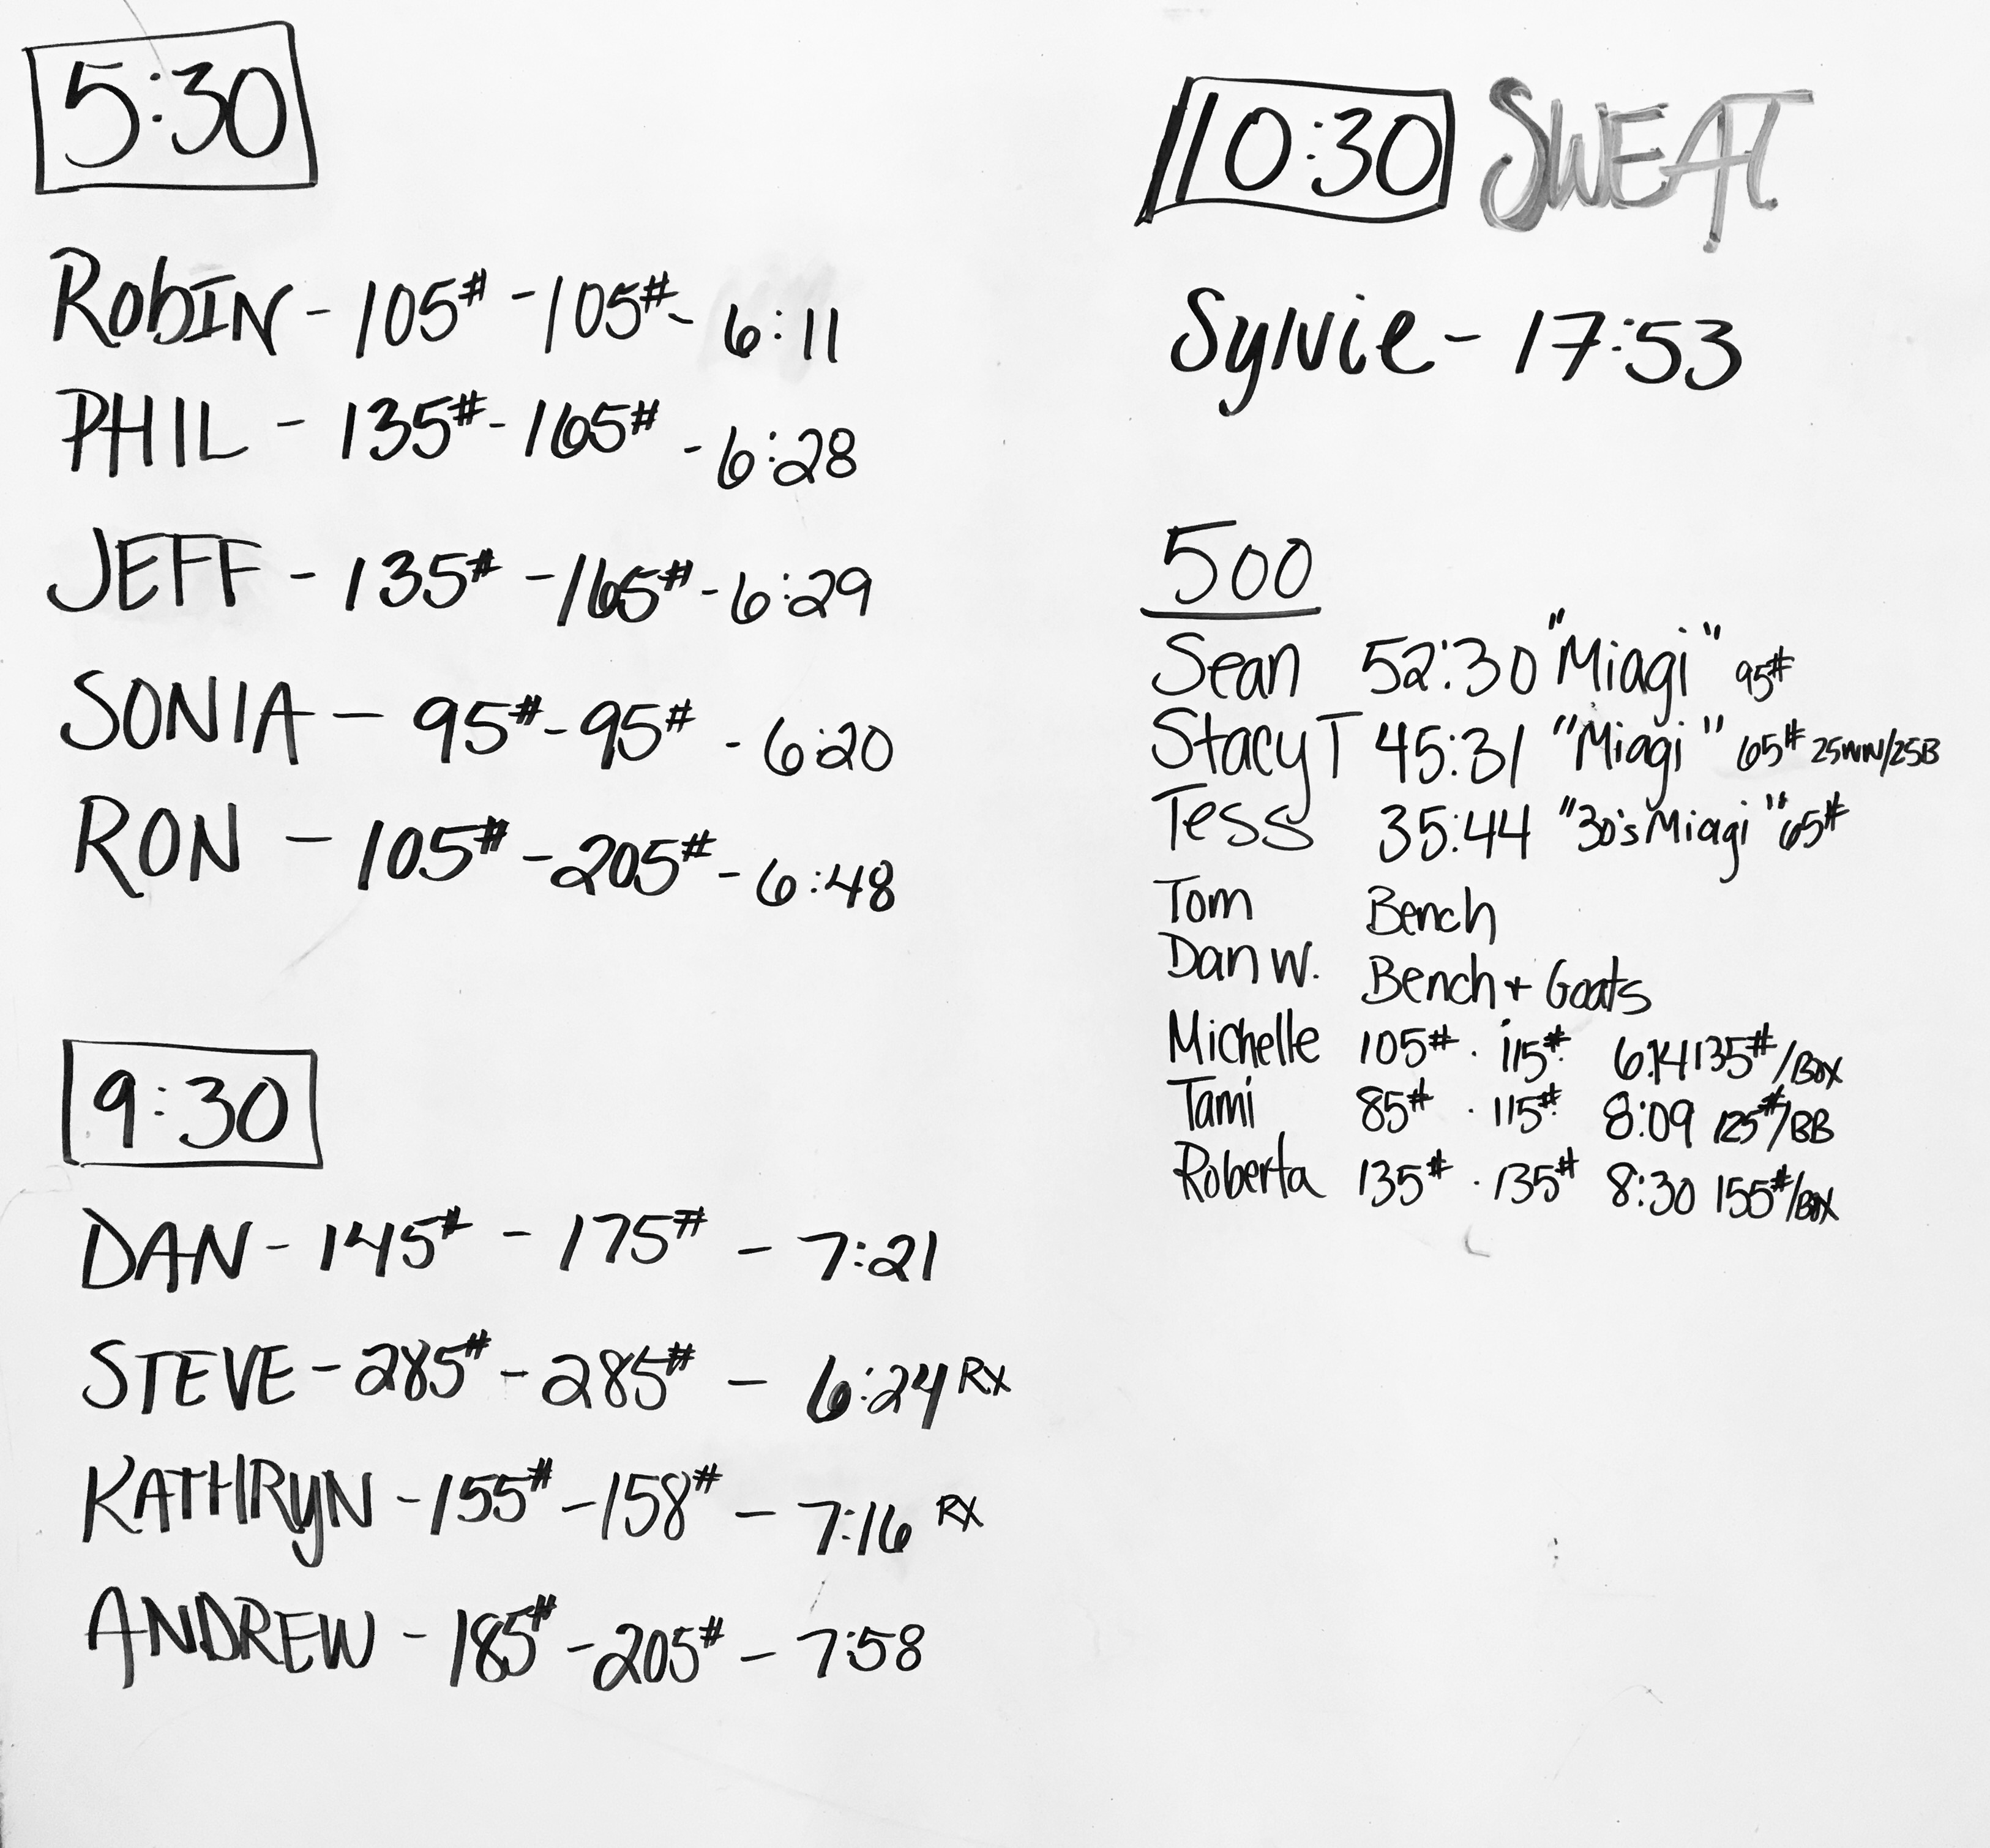 5:30
RobIN - 105# - 105# - 6:11
PHIL - 135# - 165# - 6:28
JEFF - 135# - 165# - 6:29
SONIA - 95# - 95# - 6:20
RON - 105# - 205# - 6:48
9:30
DAN - 145# - 175# - 7:21
STEVE - 285# - 285# - 6:24 RX
KATHRyN - 155# - 158# - 7:16 RX
ANDREW - 185# - 205# - 7:58
10:30 SWEAT
Sylvie - 17:53
500
Sean 52:30 "Miagi" 95#
Stacy T 45:31 "Miagi" 65# 25WN/25B
Tess 35:44 "30's Miagi" 65#
Tom Bench
Dan W. Bench + Goats
Michelle 105# · 115# 6:14 135#/Box
Tami 85# · 115# 8:09 125#/BB
Roberta 135# · 135# 8:30 155#/Box